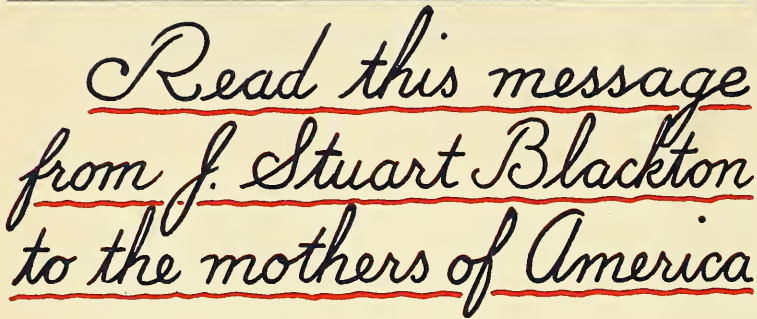 Read this message
from J. Stuart Blackton
to the mothers of America